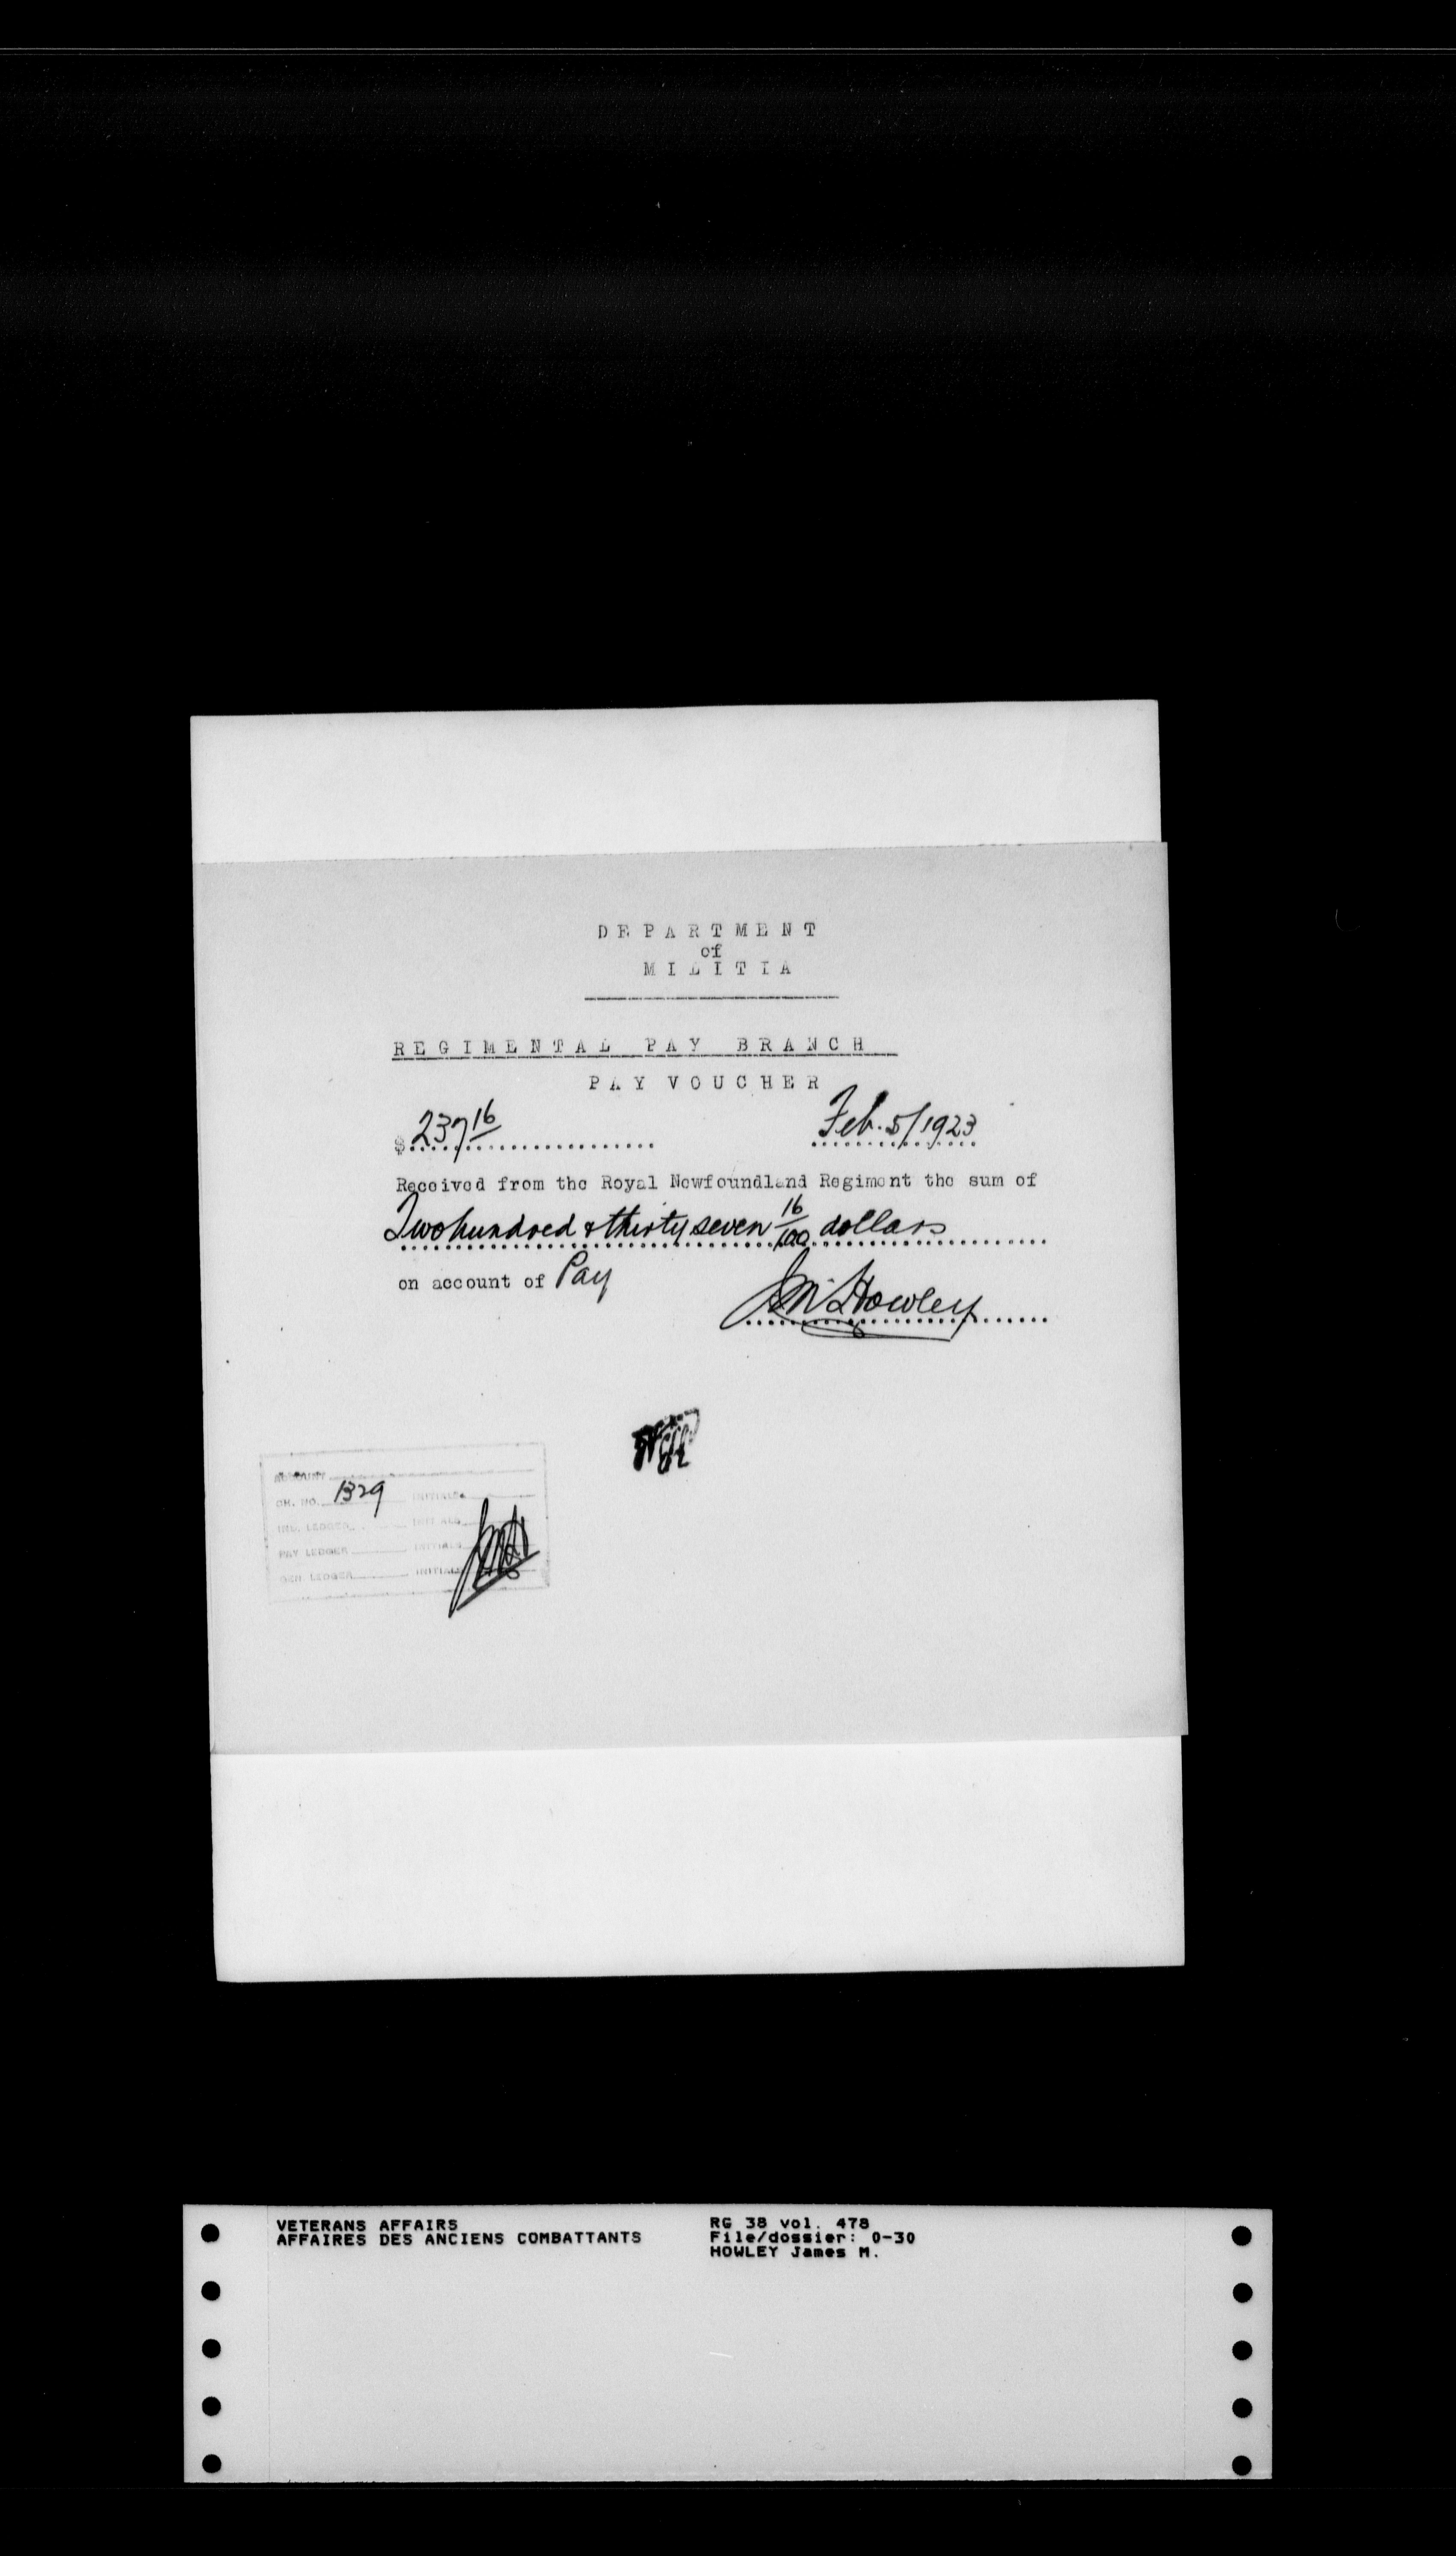 DEPARTMENT
of
MILITIA
REGIMENTAL PAY BRANCH
PAY VOUCHER
$237 16 Feb. 5/1923
Received from the Royal Newfoundland Regiment the sum of
Two hundred & thirty seven 16/100 dollars
on account of Pay
J M Howley
ACCOUNT
CH. NO. 1329 INITIALS
IND. LEDGER INITIALS
PAY LEDGER INITIALS
GEN. LEDGER INITIALS
VETERANS AFFAIRS RG 38 vol. 478
AFFAIRES DES ANCIENS COMBATTANTS File/dossier: 0-30
HOWLEY James M.